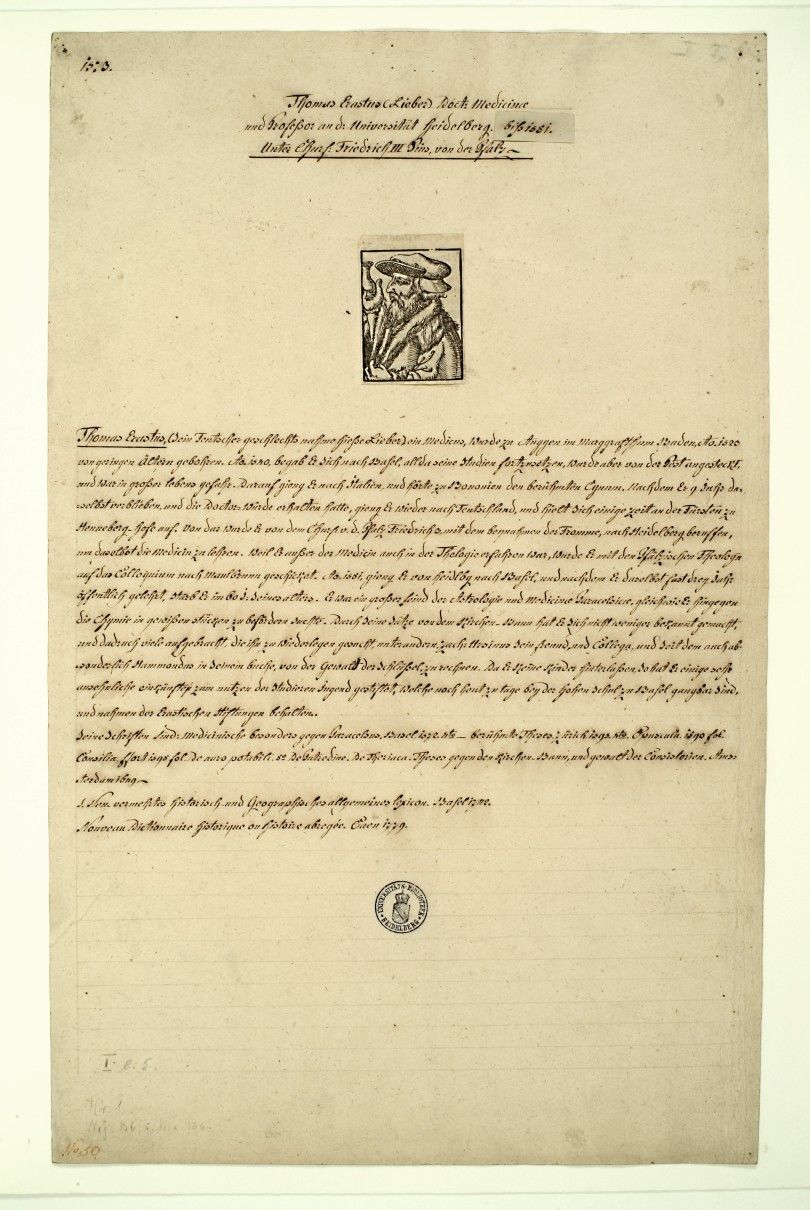 1573.
Thomas Erastus (Lieber) Doct: Medicinæ
und Profeßor an d: Universität Heidelberg. biß 1581.
Unter Churf: Friedrich III Pius, von der Pfalz
Thomas Erastus, (sein Teutscher geschlechts nahme hieße Lieber) ein Medicus, wurde zu Auggen im Marggrafthum Baaden, Ao. 1523
von geringen Ältern gebohren. Ao. 1540, begab Er sich nach Basel, allda seine Studien fortzusetzen, wurde aber von der Pest angesteckt,
und war in großer lebens gefahr. Darauf gieng Er nach Italien, und hörte zu Bononien den berühmten Nachdem Er 9 Jahr da-
selbst verblieben, und die Doctor-Würde erhalten hatte, gieng Er wieder nach Teutschland, und hielt sich einige zeit an der Fürsten zu
Henneberg Hofe auf. Von dar wurde Er von dem Churf. v. d. Pfalz Friedrich 3, mit dem beynahmen der Fromme, nach Heidelberg beruffen,
um daselbst die Medicin zu lehren. Weil Er außer der Medicin auch in der Theologie erfahren war, wurde Er mit den Pfälzischen Theologen
auf das Colloquium nach Maulbrunn geschickt. Ao. 1581, gieng Er von Heidelbg nach Basel, und nachdem Er daselbst fast drey Jahr
öffentlich gelehrt, starb Er im 60 J. seines alters. Er war ein großer feind der Astrologie und Medicinæ Paracelsicæ, gleichwie Er hingegen
die Chymie in gewißen stücken zu befördern suchte. Durch seine Sätze von dem Kirchen-Bann hat Er sich nicht weniger bekannt gemacht,
und dadurch viele aufgebracht, die ihn zu wiederlegen gesucht, unter andern, auch sein freund, und Collega, und seit dem auch ab-
sonderlich Hammondus in seinem buche, von der Gewalt der Schlüssel, zu rechnen. Da Er keine Kinder hinterlaßen, so hat Er einige sehr
ansehnliche einkünfte zum nutzen der Studieren Jugend gestiftet, welche noch heut zu tage bey der Hohen Schul zu Basel gangbar sind,
und nahmen der Erastischen Stiftungen behalten.
Seine Schriften sind: Medicinische besonders gegen Paracelsus, Basel 1572. 4to — berühmte Theses, Zürich 1595. 4to. Opuscula. 1590 fol.
Consilia, ffort 1598 fol. De auro potabili. 8o De Putredine. De Theriaca. Theses gegen den Kirchen-Bann, und gewalt der Consistorien. Ams-
terdam 1649.
S. Neu vermehrtes historisch und Geographisches allgemeines lexicon. Basel 1742.
Nouveau Dictionnaire historique ou histoire abregée. Caen 1779.
UNIVERSITÄTS-BIBLIOTHEK
HEIDELBERG
I e: 5.
No. 50